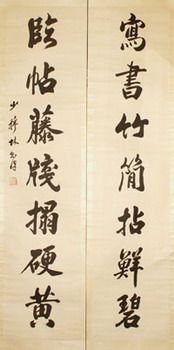 寫書竹簡拈鮮碧
臨帖藤牋搨硬黃
少穆林